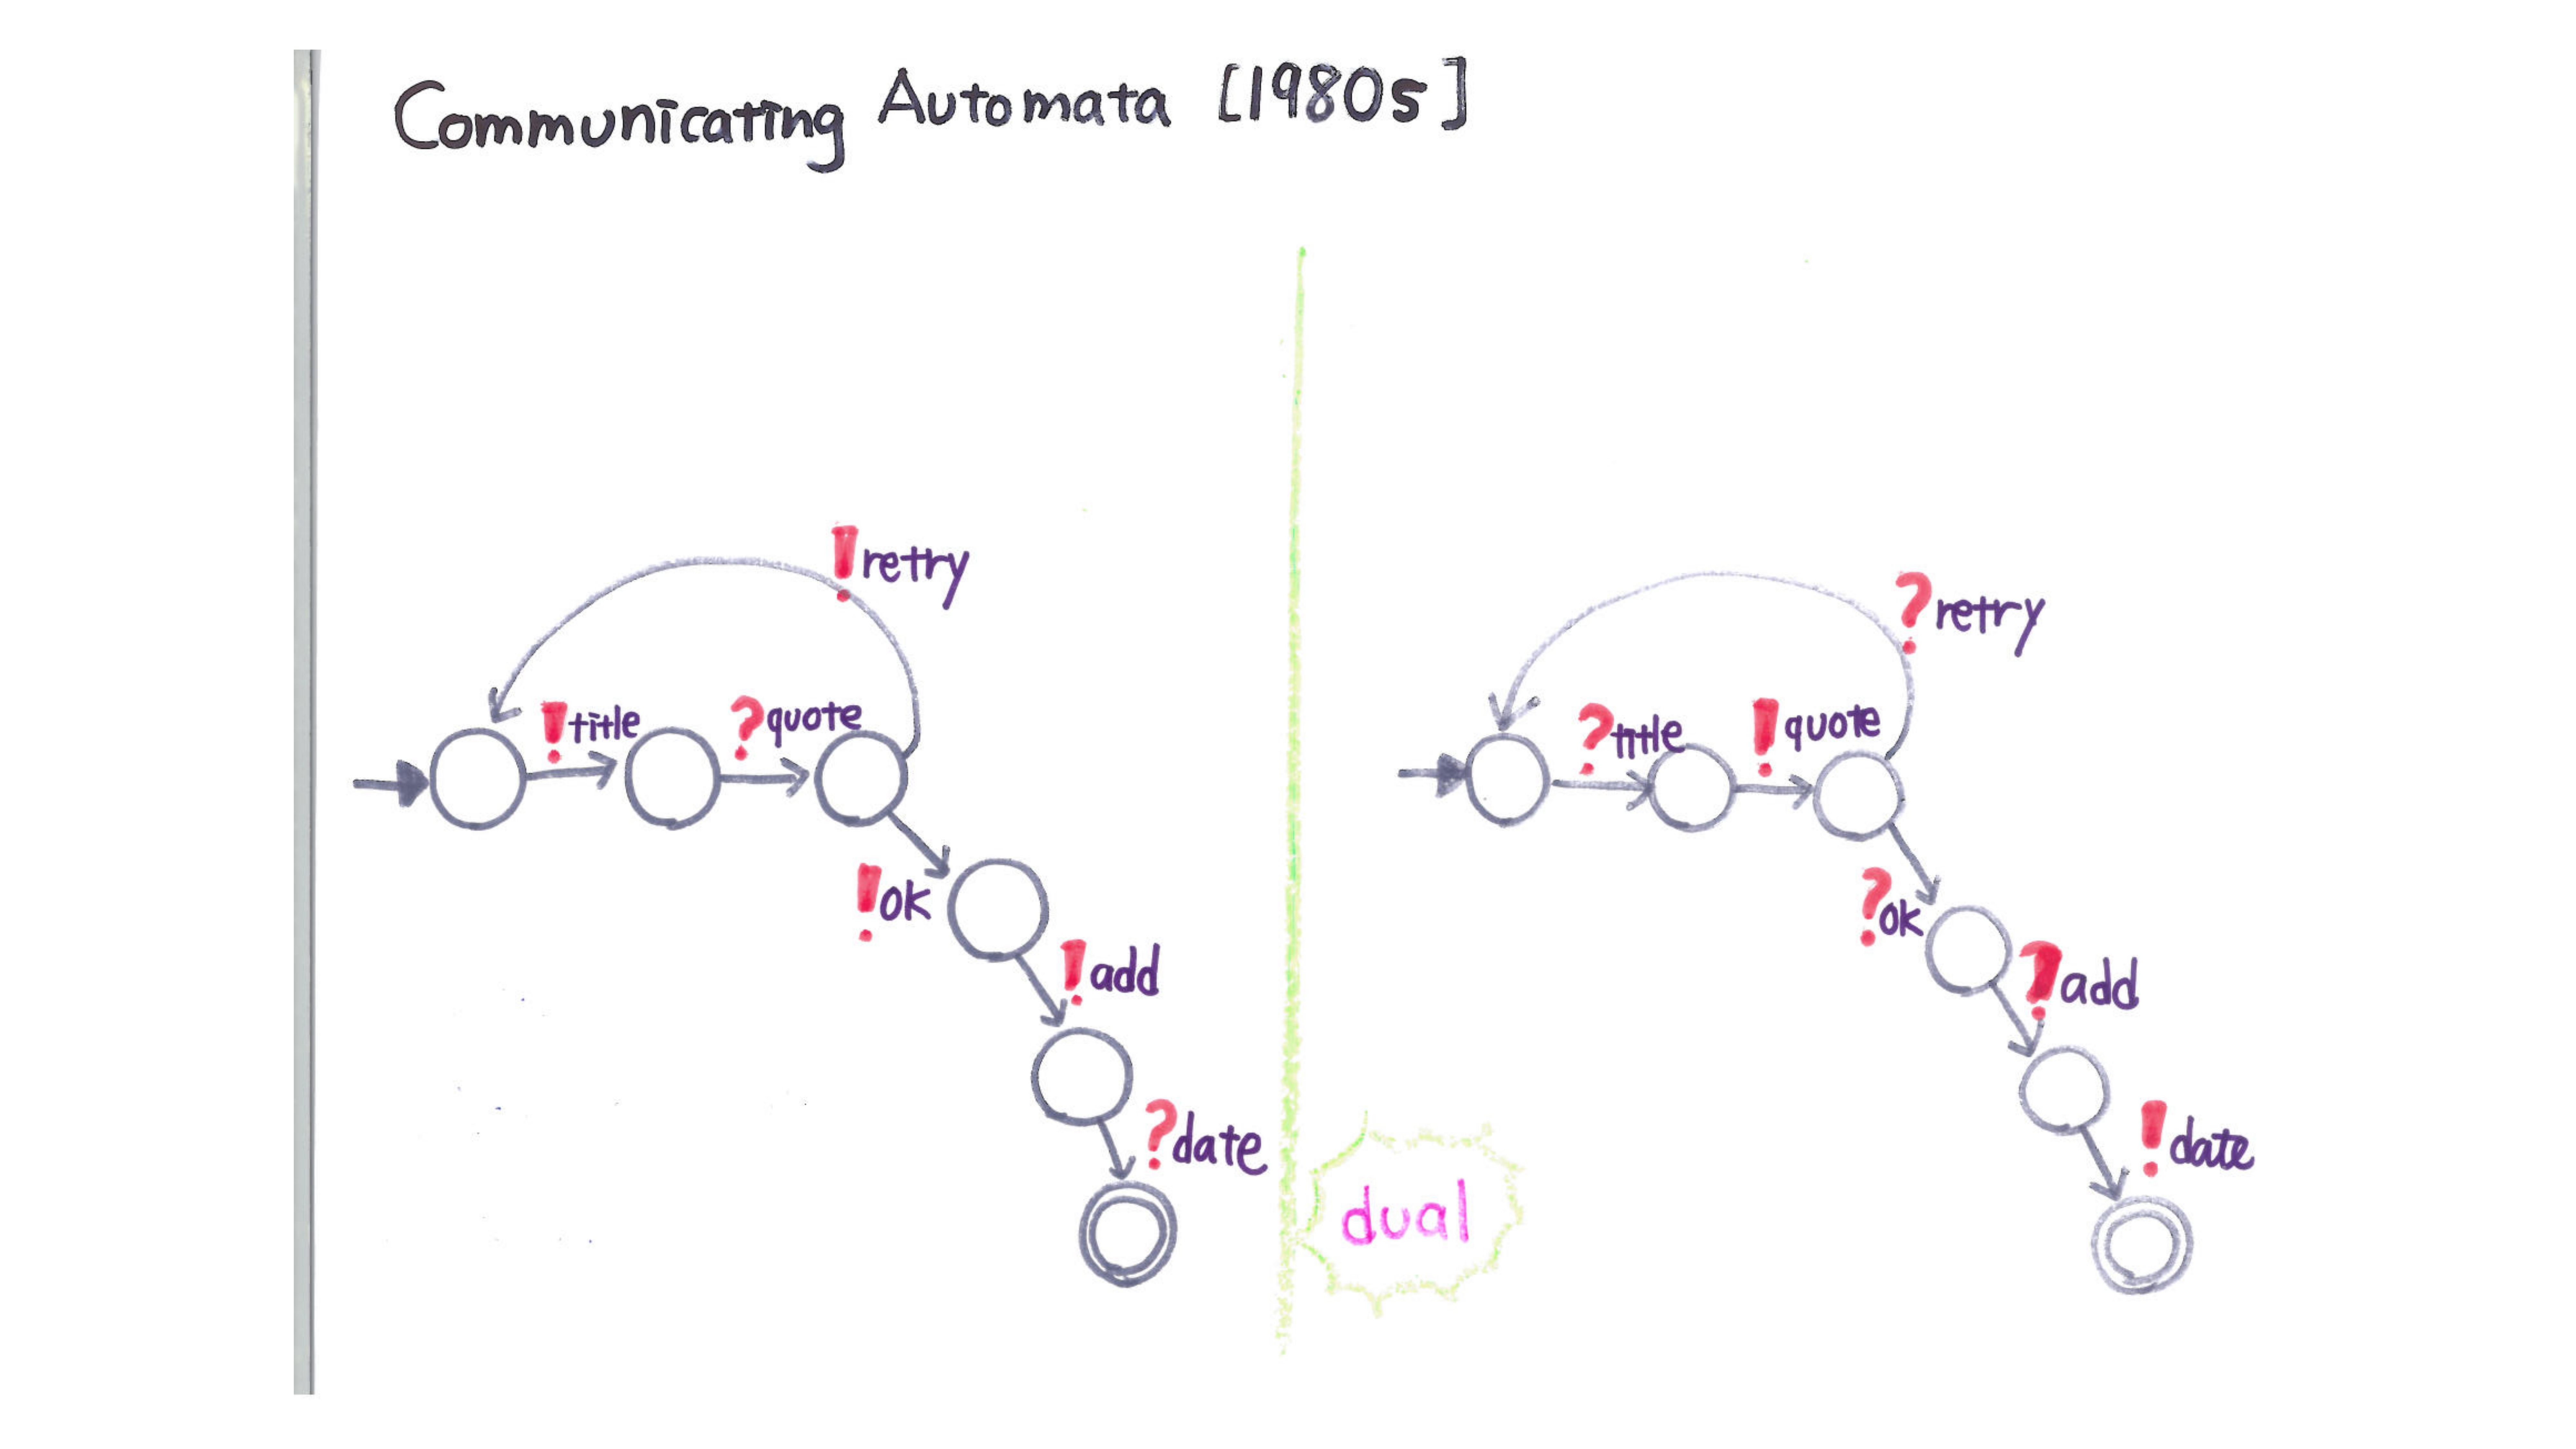 Communicating Automata [1980s]
!retry
!title
?quote
!ok
!add
?date
dual
?retry
?title
!quote
?ok
?add
!date